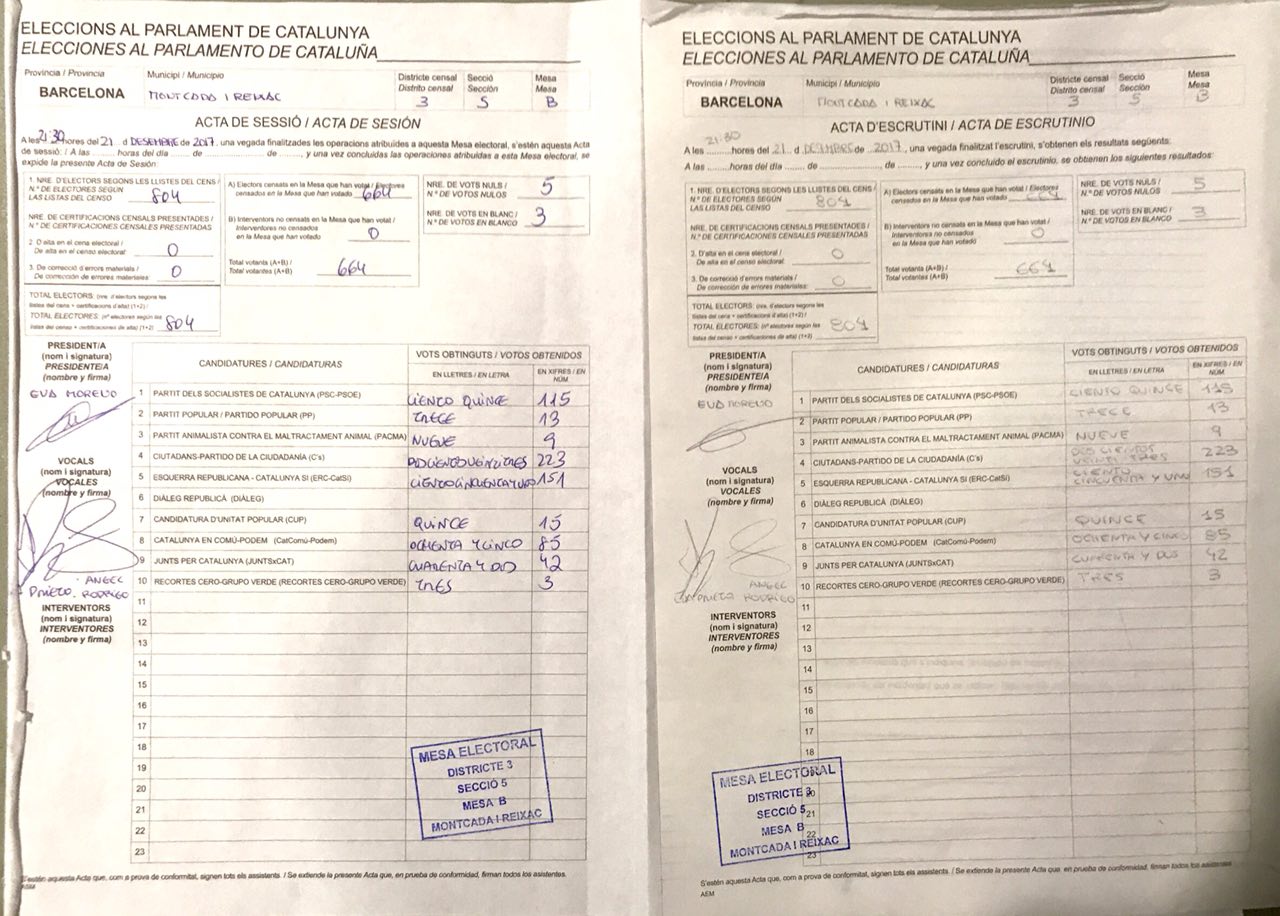 ELECCIONS AL PARLAMENT DE CATALUNYA
ELECCIONES AL PARLAMENTO DE CATALUÑA
Provincia / Provincia
BARCELONA
Municipi / Municipio
MONTCADA I REIXAC
Districte censal
Distrito censal
3
Secció
Sección
5
Mesa
Mesa
B
ACTA DE SESSIÓ / ACTA DE SESIÓN
A les 21:30 hores del 21 d DESEMBRE de 2017, una vegada finalitzades les operacions atribuides a aquesta Mesa electoral, s'estén aquesta Acta
de sessió: / A las ........ horas del día ...... de ........ de ........, y una vez concluidas las operaciones atribuidas a esta Mesa electoral, se
expide la presente Acta de Sesión:
1. NRE. D'ELECTORS SEGONS LES LLISTES DEL CENS /
N.º DE ELECTORES SEGÚN
LAS LISTAS DEL CENSO 804
NRE. DE CERTIFICACIONS CENSALS PRESENTADES /
N.º DE CERTIFICACIONES CENSALES PRESENTADAS
2. D'alta en el cens electoral /
De alta en el censo electoral: 0
3. De correcció d'errors materials /
De corrección de errores materiales: 0
TOTAL ELECTORS: (nre. d'electors segons les
llistes del cens + certificacions d'alta) (1+2) /
TOTAL ELECTORES: (nº electores según las
listas del censo + certificaciones de alta) (1+2) 804
A) Electors censats en la Mesa que han votat / Electores
censados en la Mesa que han votado 664
B) Interventors no censats en la Mesa que han votat /
Interventores no censados
en la Mesa que han votado 0
Total votants (A+B) /
Total votantes (A+B) 664
NRE. DE VOTS NULS /
N.º DE VOTOS NULOS 5
NRE. DE VOTS EN BLANC /
N.º DE VOTOS EN BLANCO 3
PRESIDENT/A
(nom i signatura)
PRESIDENTE/A
(nombre y firma)
EVA MORENO
VOCALS
(nom i signatura)
VOCALES
(nombre y firma)
ANGEL
PRIETO. RODRIGO
INTERVENTORS
(nom i signatura)
INTERVENTORES
(nombre y firma)
CANDIDATURES / CANDIDATURAS
VOTS OBTINGUTS / VOTOS OBTENIDOS
EN LLETRES / EN LETRA
EN XIFRES / EN NÚM
1 PARTIT DELS SOCIALISTES DE CATALUNYA (PSC-PSOE) CIENTO QUINCE 115
2 PARTIT POPULAR / PARTIDO POPULAR (PP) TRECE 13
3 PARTIT ANIMALISTA CONTRA EL MALTRACTAMENT ANIMAL (PACMA) NUEVE 9
4 CIUTADANS-PARTIDO DE LA CIUDADANÍA (C's) DOSCIENTOSVEINTITRES 223
5 ESQUERRA REPUBLICANA - CATALUNYA SI (ERC-CatSí) CIENTOCINCUENTAYUNO 151
6 DIÀLEG REPUBLICÀ (DIÀLEG)
7 CANDIDATURA D'UNITAT POPULAR (CUP) QUINCE 15
8 CATALUNYA EN COMÚ-PODEM (CatComú-Podem) OCHENTA Y CINCO 85
9 JUNTS PER CATALUNYA (JUNTSxCAT) CUARENTA Y DOS 42
10 RECORTES CERO-GRUPO VERDE (RECORTES CERO-GRUPO VERDE) TRES 3
11
12
13
14
15
16
17
18
19
20
21
22
23
MESA ELECTORAL
DISTRICTE 3
SECCIÓ 5
MESA B
MONTCADA I REIXAC
S'estén aquesta Acta que, com a prova de conformitat, signen tots els assistents. / Se extiende la presente Acta que, en prueba de conformidad, firman todos los asistentes.
AEM
ELECCIONS AL PARLAMENT DE CATALUNYA
ELECCIONES AL PARLAMENTO DE CATALUÑA
Provincia / Provincia
BARCELONA
Municipi / Municipio
MONTCADA I REIXAC
Districte censal
Distrito censal
3
Secció
Sección
5
Mesa
Mesa
B
ACTA D'ESCRUTINI / ACTA DE ESCRUTINIO
21:30
A les ........ hores del 21 d DESEMBRE de 2017, una vegada finalitzat l'escrutini, s'obtenen els resultats següents:
A las ........ horas del día ...... de ........ de ........, y una vez concluido el escrutinio, se obtienen los siguientes resultados:
1. NRE. D'ELECTORS SEGONS LES LLISTES DEL CENS /
N.º DE ELECTORES SEGÚN
LAS LISTAS DEL CENSO 804
NRE. DE CERTIFICACIONS CENSALS PRESENTADES /
N.º DE CERTIFICACIONES CENSALES PRESENTADAS
2. D'alta en el cens electoral /
De alta en el censo electoral: 0
3. De correcció d'errors materials /
De corrección de errores materiales: 0
TOTAL ELECTORS: (nre. d'electors segons les
llistes del cens + certificacions d'alta) (1+2) /
TOTAL ELECTORES: (nº electores según las
listas del censo + certificaciones de alta) (1+2) 804
A) Electors censats en la Mesa que han votat / Electores
censados en la Mesa que han votado 664
B) Interventors no censats en la Mesa que han votat /
Interventores no censados
en la Mesa que han votado 0
Total votants (A+B) /
Total votantes (A+B) 664
NRE. DE VOTS NULS /
N.º DE VOTOS NULOS 5
NRE. DE VOTS EN BLANC /
N.º DE VOTOS EN BLANCO 3
PRESIDENT/A
(nom i signatura)
PRESIDENTE/A
(nombre y firma)
EVA MORENO
VOCALS
(nom i signatura)
VOCALES
(nombre y firma)
ANGEL
PRIETO RODRIGO
INTERVENTORS
(nom i signatura)
INTERVENTORES
(nombre y firma)
CANDIDATURES / CANDIDATURAS
VOTS OBTINGUTS / VOTOS OBTENIDOS
EN LLETRES / EN LETRA
EN XIFRES / EN NÚM
1 PARTIT DELS SOCIALISTES DE CATALUNYA (PSC-PSOE) CIENTO QUINCE 115
2 PARTIT POPULAR / PARTIDO POPULAR (PP) TRECE 13
3 PARTIT ANIMALISTA CONTRA EL MALTRACTAMENT ANIMAL (PACMA) NUEVE 9
4 CIUTADANS-PARTIDO DE LA CIUDADANÍA (C's) DOSCIENTOS VEINTI TRES 223
5 ESQUERRA REPUBLICANA - CATALUNYA SI (ERC-CatSí) CIENTO CINCUENTA Y UNO 151
6 DIÀLEG REPUBLICÀ (DIÀLEG)
7 CANDIDATURA D'UNITAT POPULAR (CUP) QUINCE 15
8 CATALUNYA EN COMÚ-PODEM (CatComú-Podem) OCHENTA Y CINCO 85
9 JUNTS PER CATALUNYA (JUNTSxCAT) CUARENTA Y DOS 42
10 RECORTES CERO-GRUPO VERDE (RECORTES CERO-GRUPO VERDE) TRES 3
11
12
13
14
15
16
17
18
20
21
22
23
MESA ELECTORAL
DISTRICTE 3
SECCIÓ 5
MESA B
MONTCADA I REIXAC
S'estén aquesta Acta que, com a prova de conformitat, signen tots els assistents. / Se extiende la presente Acta que, en prueba de conformidad, firman todos los asistentes.
AEM